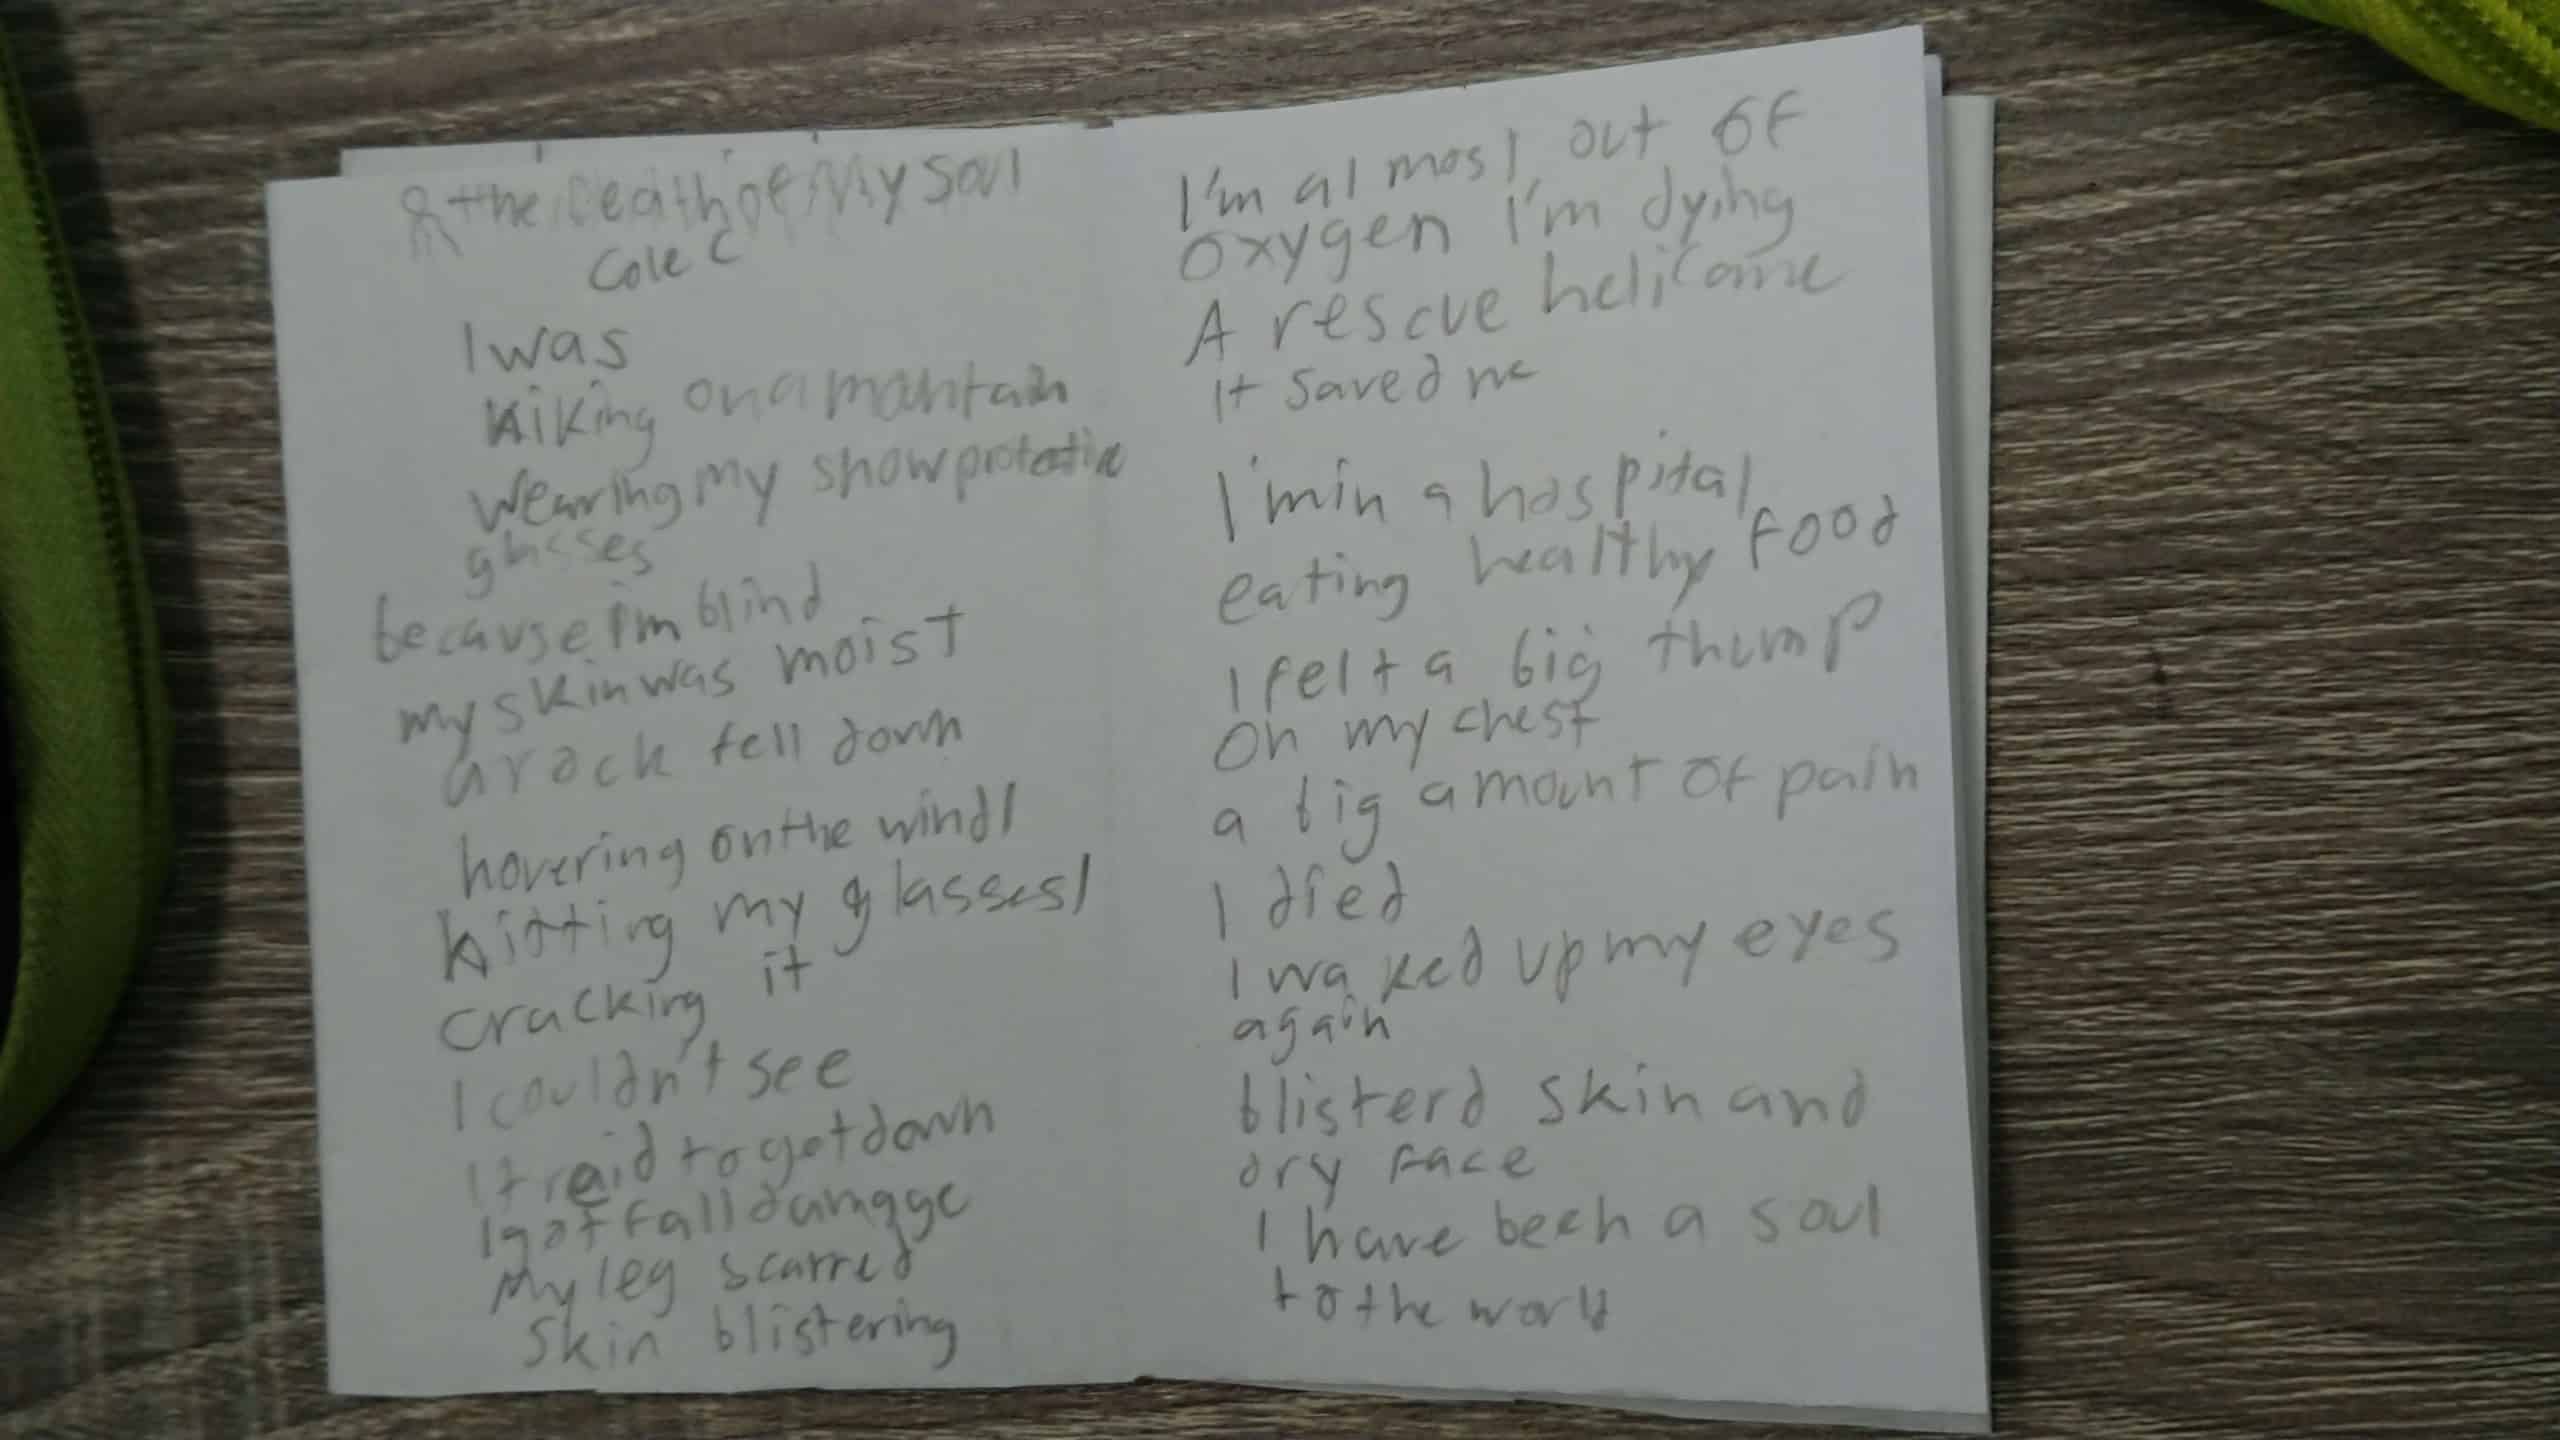 the Death of My Soul
Cole C
I was
hiking on a mantain
wearing my snow protective
glasses
because i'm blind
my skin was moist
a rock fell down
hovering on the wind/
hitting my glasses/
cracking it
I couldn't see
I traid to get down
I got fall damage
My leg scarred
skin blistering
I'm almost out of
oxygen I'm dying
A rescue heli came
it saved me
I'm in a hospital
eating healthy food
I felt a big thump
on my chest
a big amount of pain
I died
I waked up my eyes
again
blisterd skin and
dry face
I have been a soul
to the world